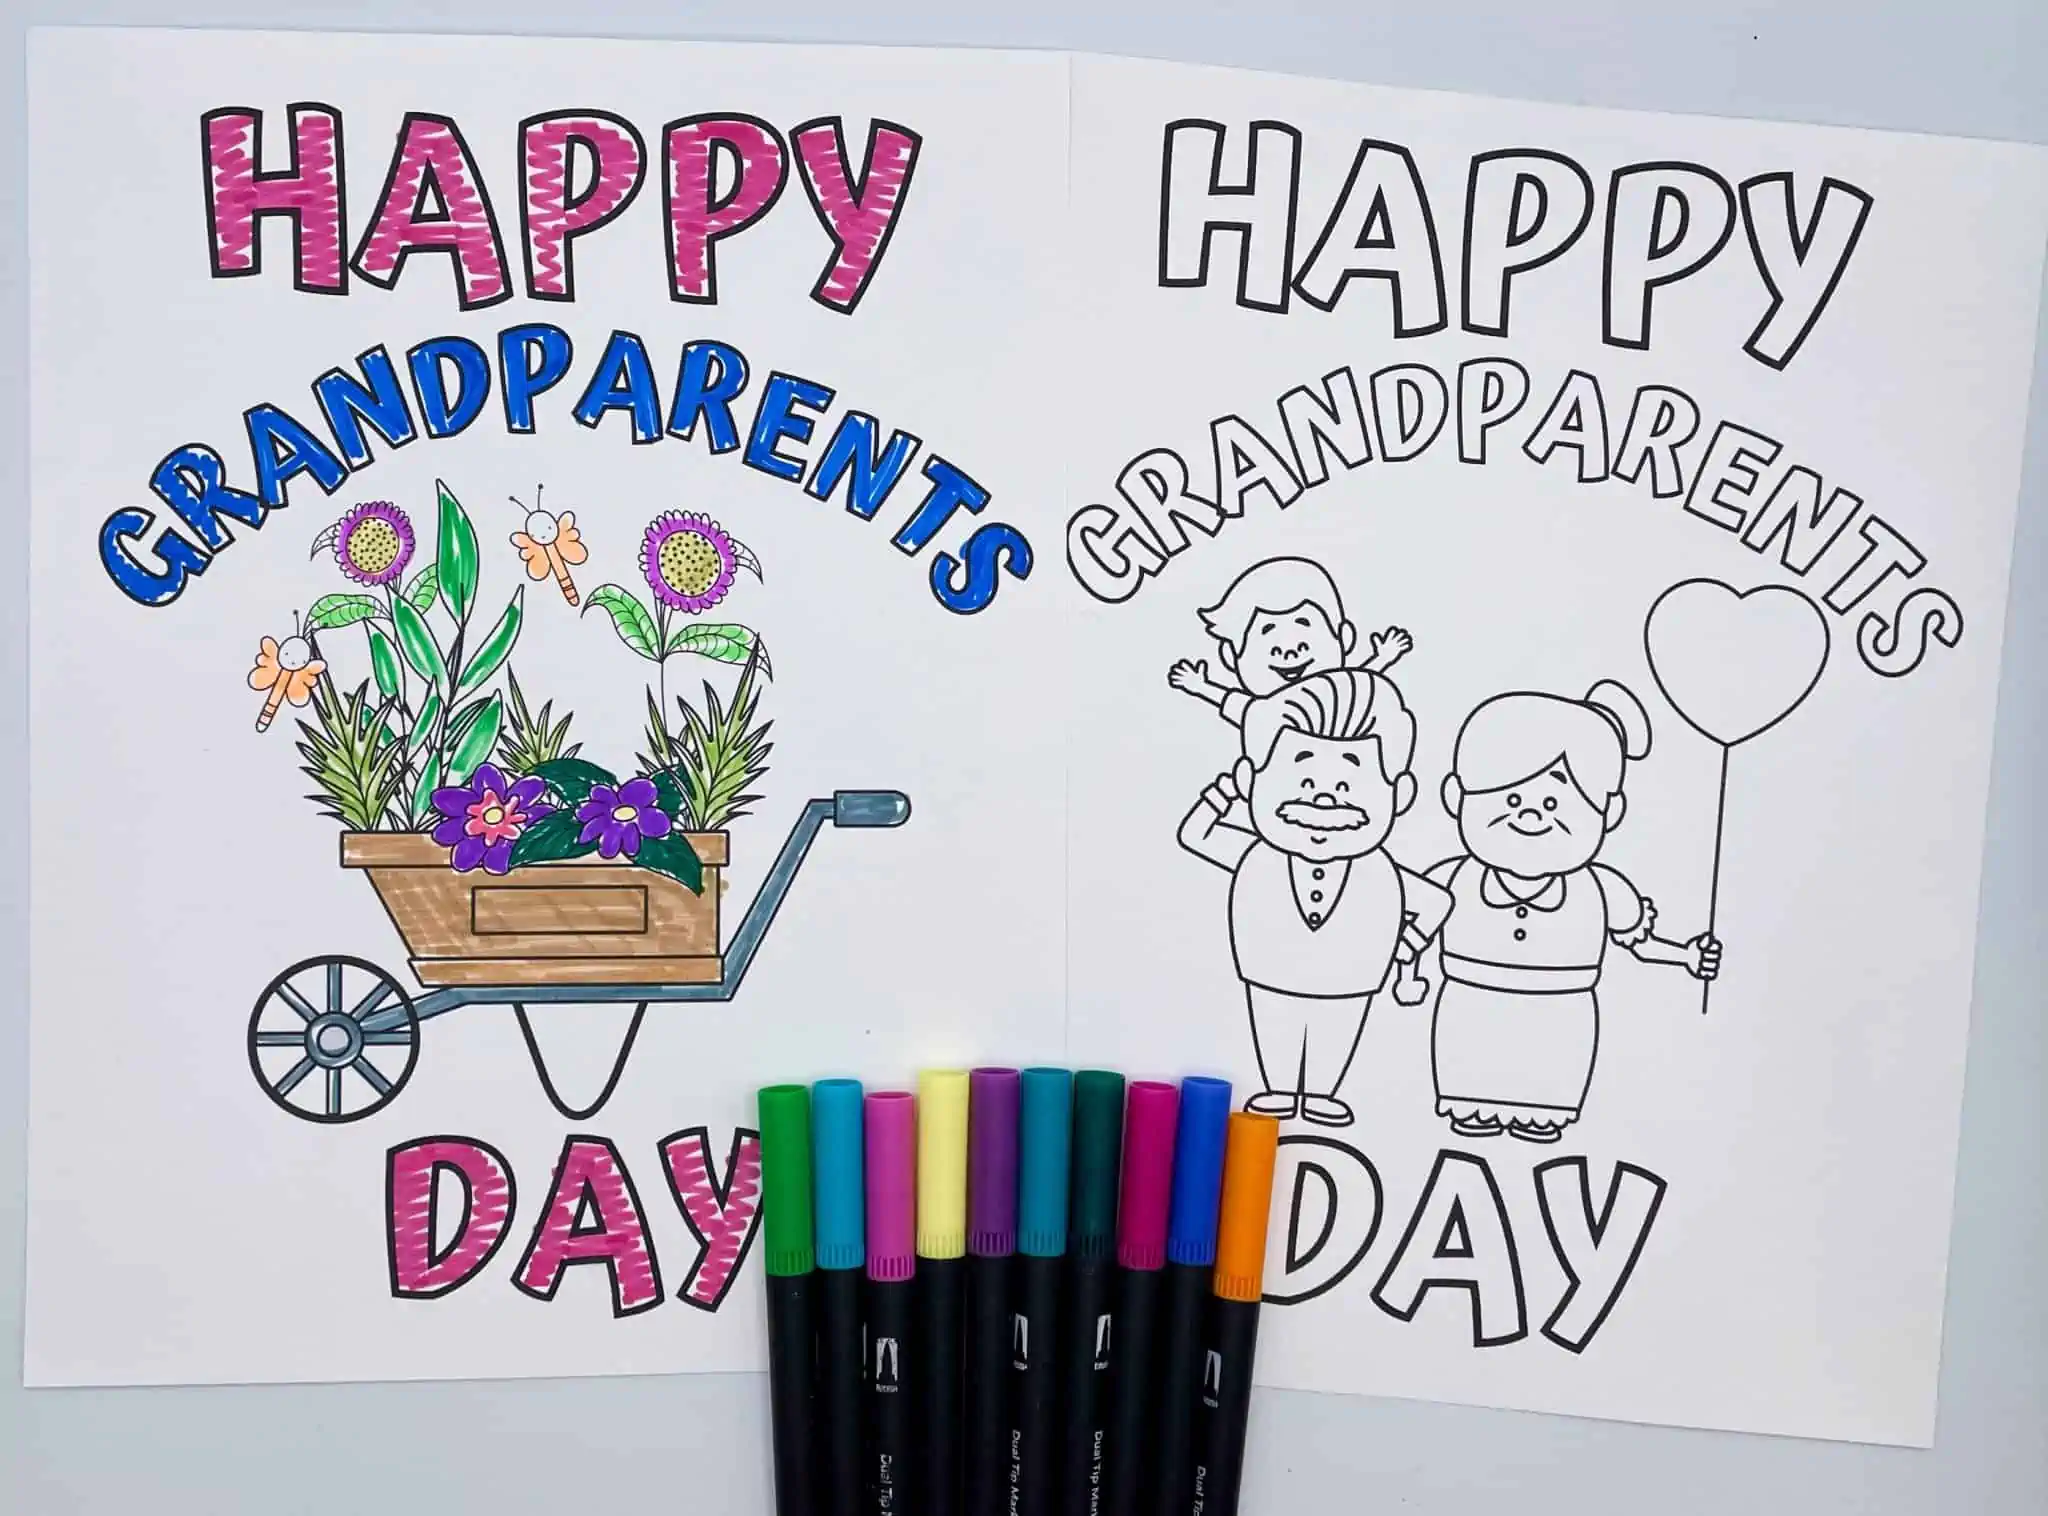 HAPPY
GRANDPARENTS
DAY
HAPPY
GRANDPARENTS
DAY
Dual Tip
Dual Tip
Dual Tip
Dual Tip